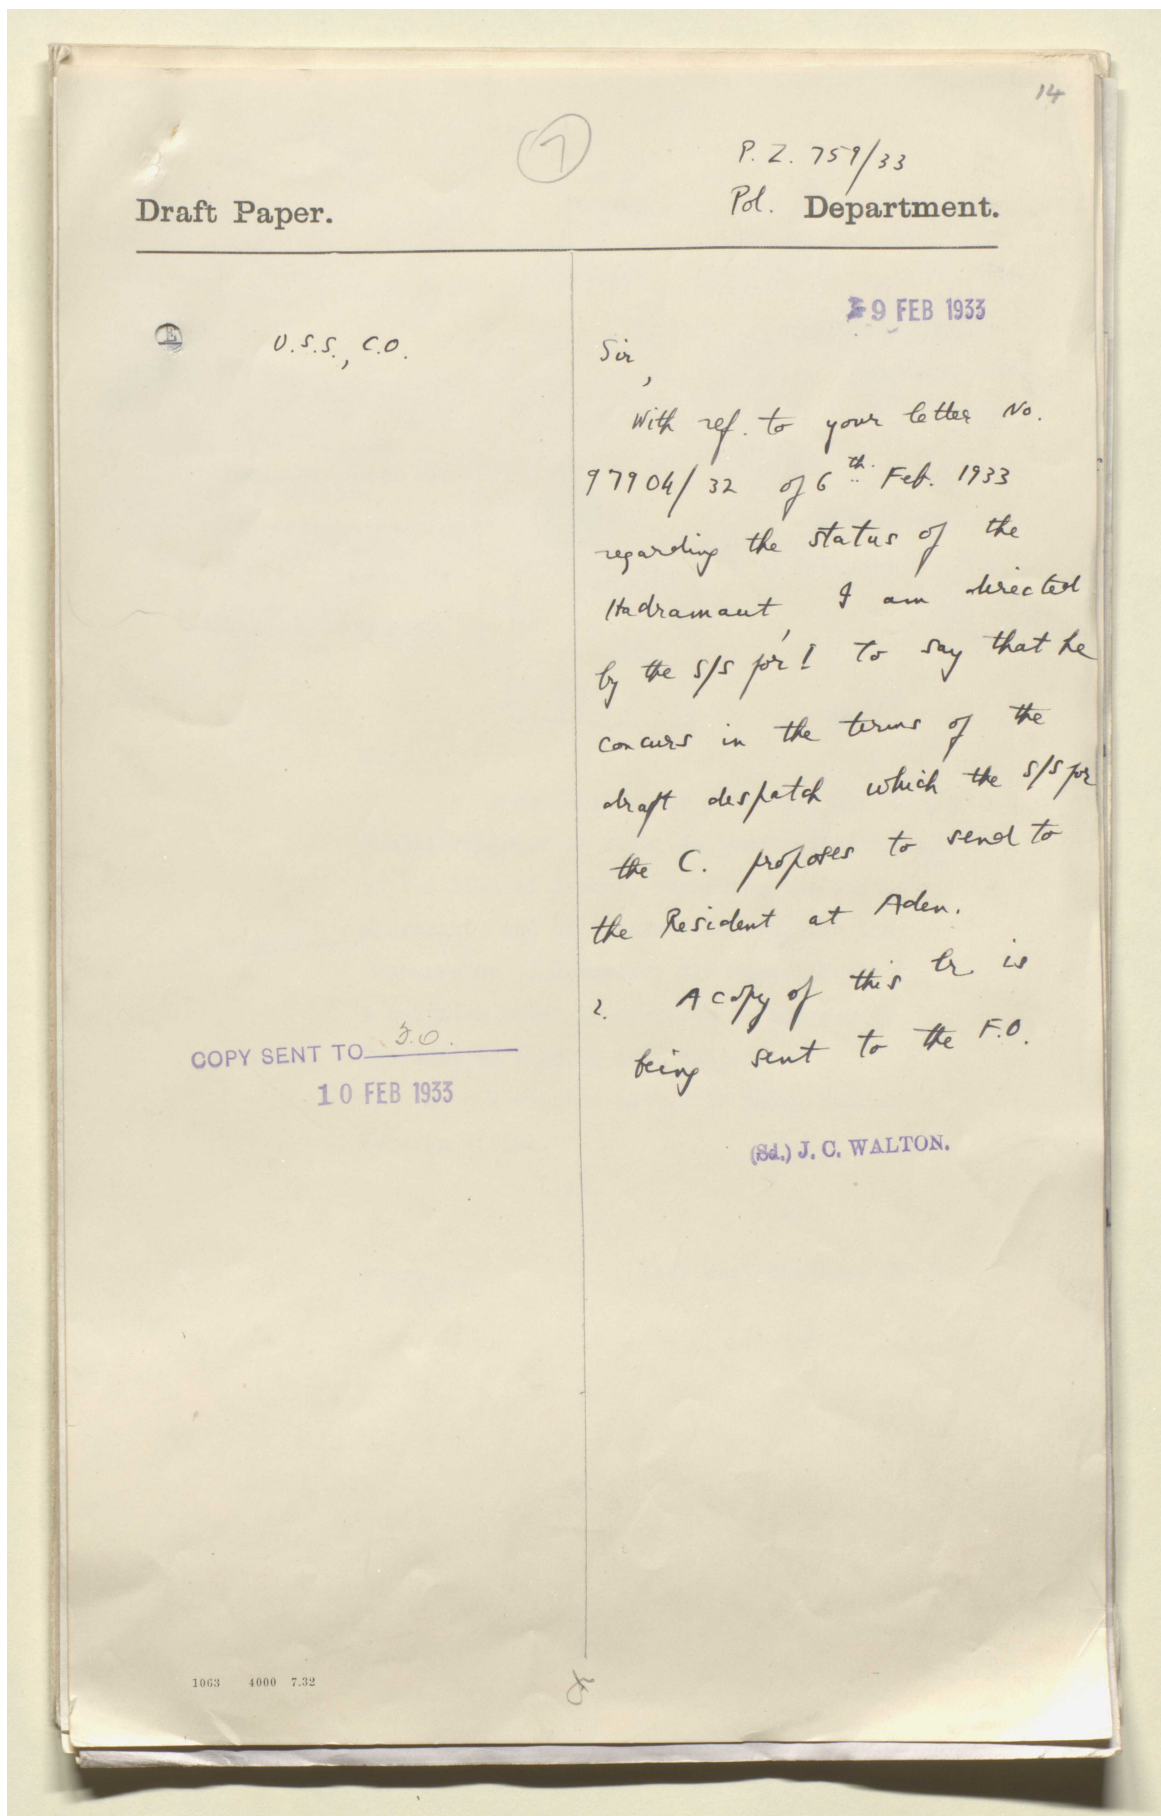 14
7
P. Z. 759/33
Draft Paper.
Pol. Department.
9 FEB 1933
U.S.S., C.O.
Sir,
With ref. to your letter No.
97904/32 of 6th. Feb. 1933
regarding the status of the
Hadramaut, I am directed
by the S/S for I to say that he
concurs in the terms of the
draft despatch which the S/S for
the C. proposes to send to
the Resident at Aden.
2. A copy of this lr. is
being sent to the F.O.
COPY SENT TO F.O.
10 FEB 1933
(Sd.) J. C. WALTON.
1063 4000 7.32